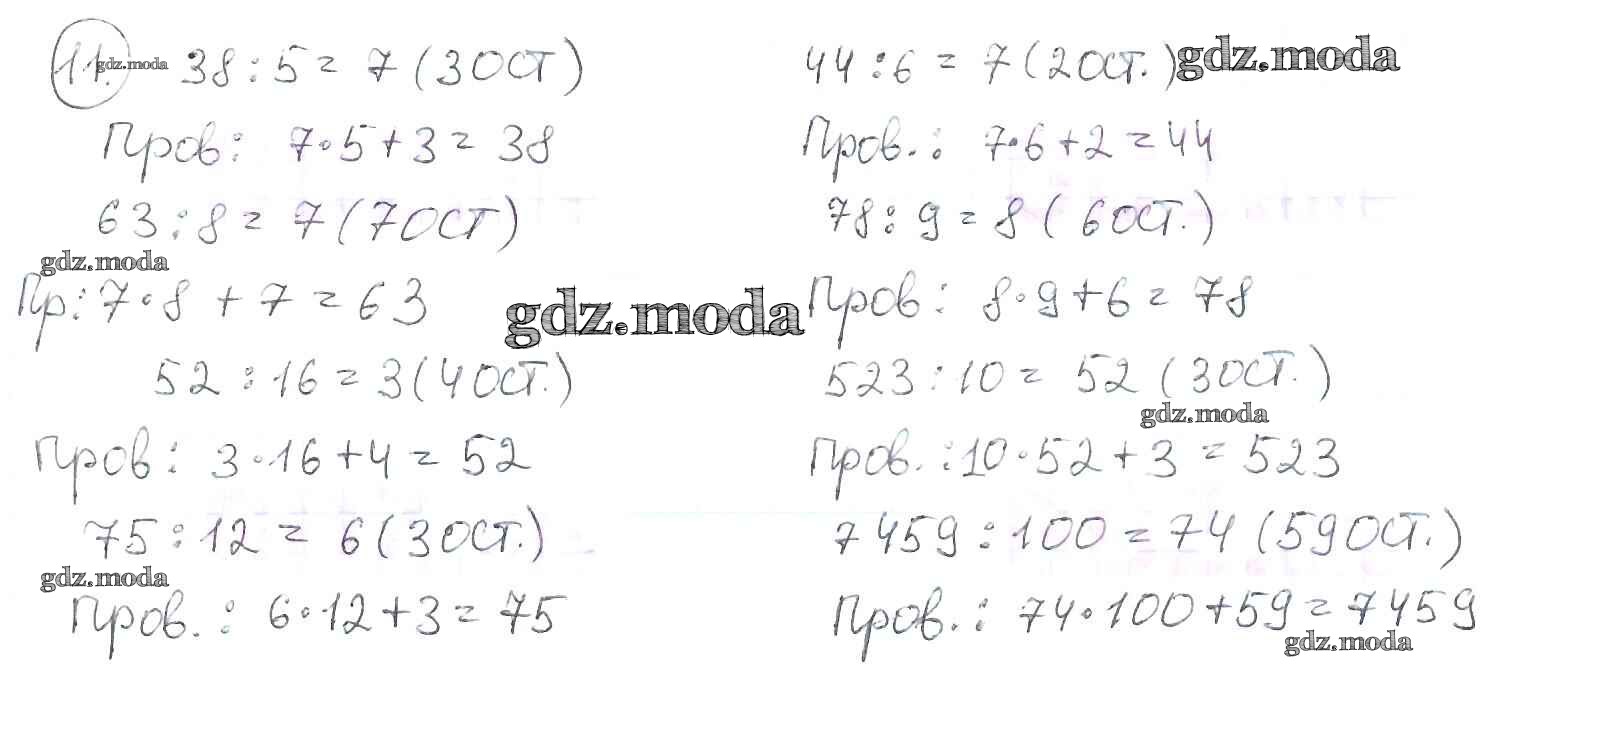 11. 38:5=7(3ОСТ) 44:6=7(2ОСТ.)
Пров: 7·5+3=38 Пров.: 7·6+2=44
63:8=7(7ОСТ) 78:9=8(6ОСТ.)
Пр:7·8+7=63 Пров: 8·9+6=78
52:16=3(4ОСТ.) 523:10=52(3ОСТ.)
Пров: 3·16+4=52 Пров.:10·52+3=523
75:12=6(3ОСТ.) 7459:100=74(59ОСТ.)
Пров.: 6·12+3=75 Пров.: 74·100+59=7459
gdz.moda
gdz.moda
gdz.moda
gdz.moda
gdz.moda
gdz.moda
gdz.moda